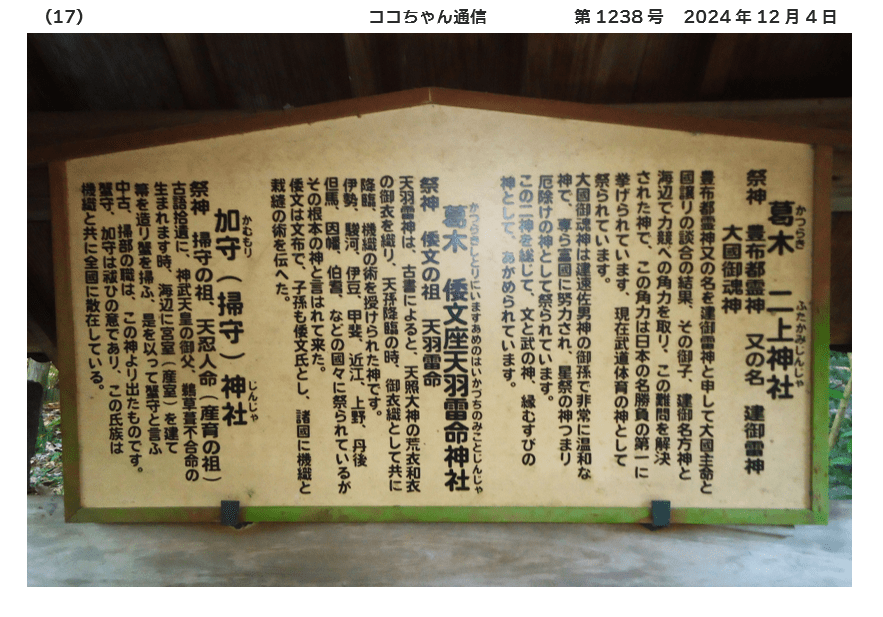 (17)
ココちゃん通信
第1238号 2024年12月4日
かつらき ふたかみじんじゃ
葛木 二上神社
祭神 豊布都霊神 又の名 建御雷神
大國御魂神
豊布都霊神又の名を建御雷神と申して大國主命と
國譲リの談合の結果、その御子、建御名方神と
海辺で力競への角力を取り、この難問を解決
された神で、この角力は日本の名勝負の第一に
挙げられています、現在武道体育の神として
祭られています。
大國御魂神は建速佐男神の御孫で非常に温和な
神で、専ら富國に努力され、星祭の神つまり
厄除けの神として祭られています。
この二神を總じて、文と武の神、縁むすびの
神として、あがめられています。
かつらきしとりにいますあめのはいかつちのみことじんじゃ
葛木 倭文座天羽雷命神社
祭神 倭文の祖 天羽雷命
天羽雷神は、古書によると、天照大神の荒衣和衣
の御衣を織り、天孫降臨の時、御衣織として共に
降臨、機織の術を授けられた神です。
伊勢、駿河、伊豆、甲斐、近江、上野、丹後
但馬、因幡、伯耆、などの國々に祭られているが
その根本の神と言はれて来た。
倭文は文布で、子孫も倭文氏とし、諸國に機織と
栽縫の術を伝へた。
かむもり じんじゃ
加守(掃守)神社
祭神 掃守の祖 天忍人命(産育の祖)
古語拾遺に、神武天皇の御父、鵜草葺不合命の
生まれます時、海辺に宮室(産室)を建て
箒を造り蟹を掃ふ、是を以って蟹守と言ふ
中古、掃部の職は、この神より出たものです。
蟹守、加守は祓ひの意であり、この氏族は
機織と共に全國に散在している。